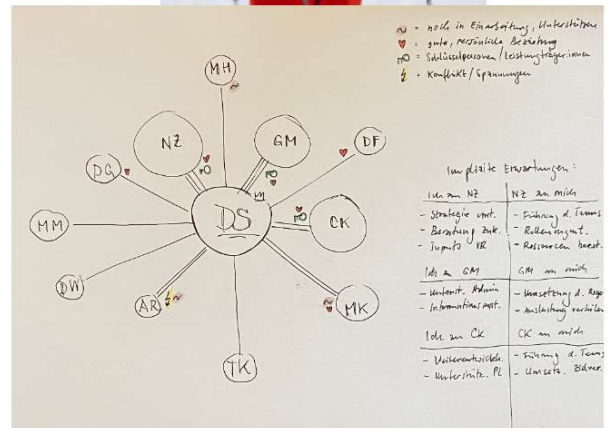 ~ = noch in Einarbeitung, Unterstützen
♥ = gute, persönliche Beziehung
= Schlüsselpersonen / Leistungsträger:innen
= Konflikt / Spannungen
MH
NZ
GM
DF
DG
DS
CK
MM
DW
AR
MK
TK
Implizite Erwartungen:
Ich an NZ | NZ an mich
- Strategie | - Führung d. Teams
- Beratung zuk. | - Rollenmgmt.
- Inputs VR | - Ressourcen
Ich an GM | GM an mich
- Unterst. Admin | - Umsetzung d.
- | - Auslastung
Ich an CK | CK an mich
- Weiterentwickl. | - Führung d. Teams
- Unterstütz. PL | - Umsetz.